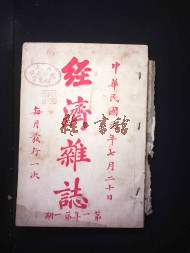 中華民國年七月二十日
經濟雜誌
第一年第一期
每月發行一次